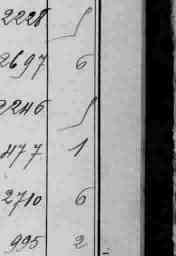 2228
2697 6
2246
477 1
2710 6
995 2